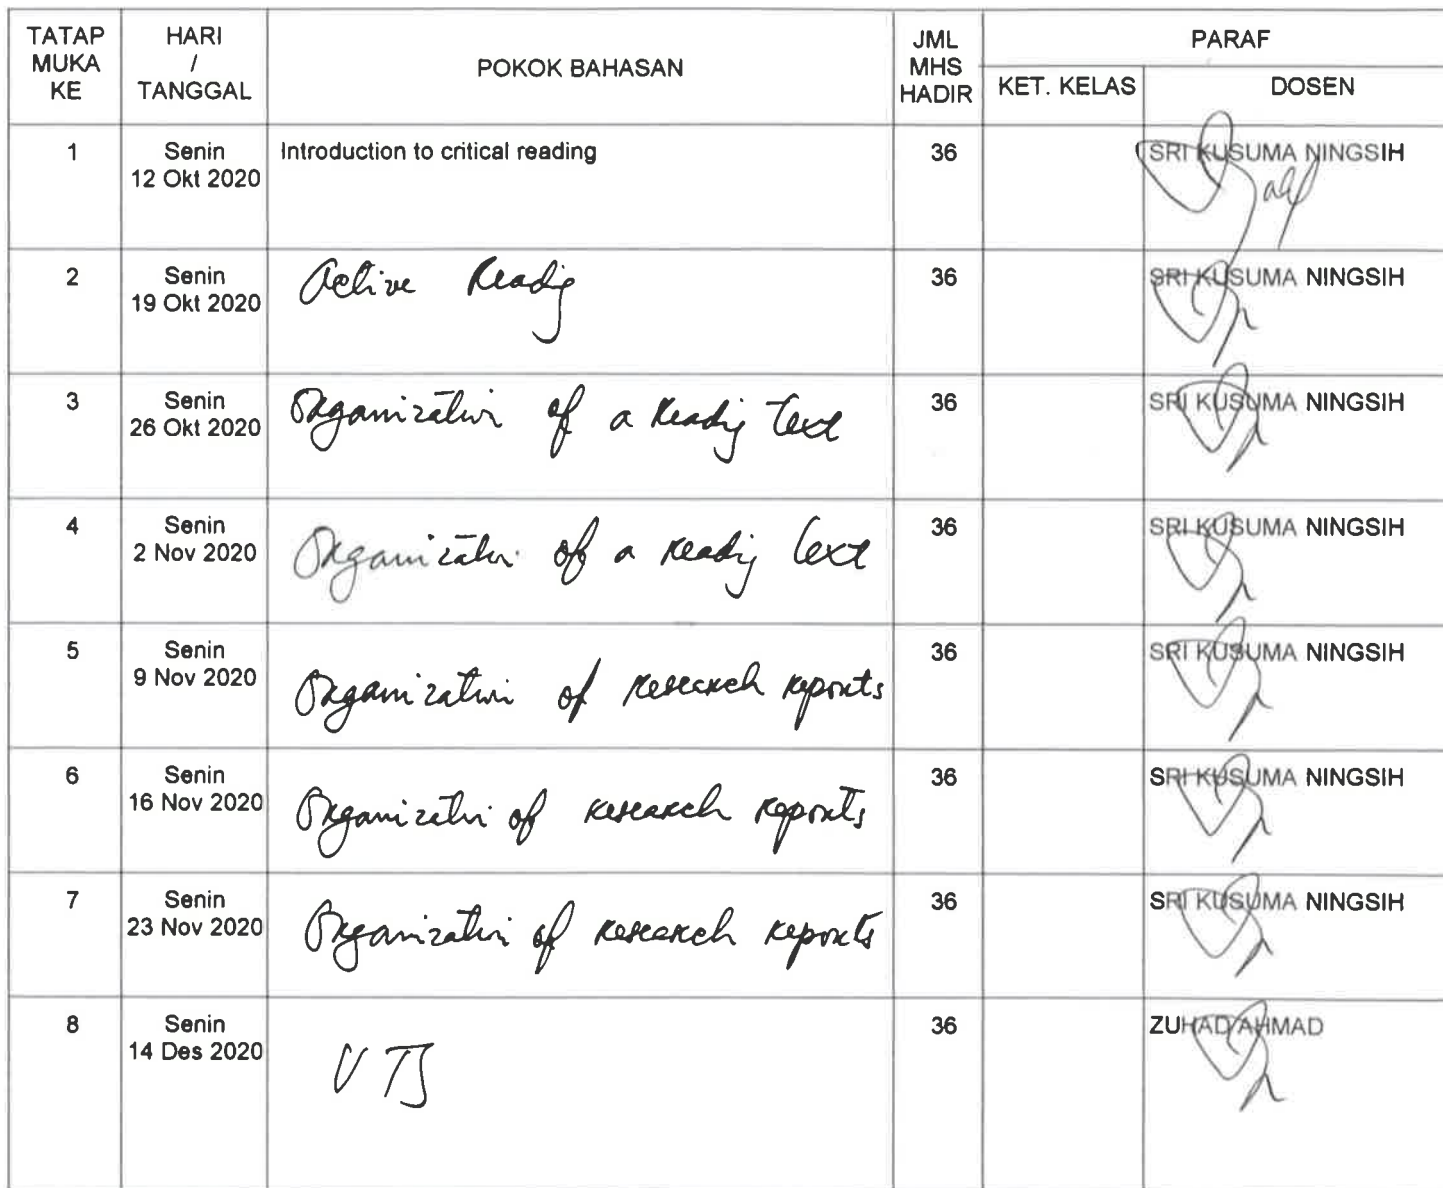 TATAP MUKA KE
HARI / TANGGAL
POKOK BAHASAN
JML MHS HADIR
PARAF
KET. KELAS
DOSEN
1
Senin
12 Okt 2020
Introduction to critical reading
36
SRI KUSUMA NINGSIH
2
Senin
19 Okt 2020
Active Reading
36
SRI KUSUMA NINGSIH
3
Senin
26 Okt 2020
Organization of a Reading Text
36
SRI KUSUMA NINGSIH
4
Senin
2 Nov 2020
Organization of a reading text
36
SRI KUSUMA NINGSIH
5
Senin
9 Nov 2020
Organization of research reports
36
SRI KUSUMA NINGSIH
6
Senin
16 Nov 2020
Organization of research reports
36
SRI KUSUMA NINGSIH
7
Senin
23 Nov 2020
Organization of research reports
36
SRI KUSUMA NINGSIH
8
Senin
14 Des 2020
UTS
36
ZUHAD AHMAD